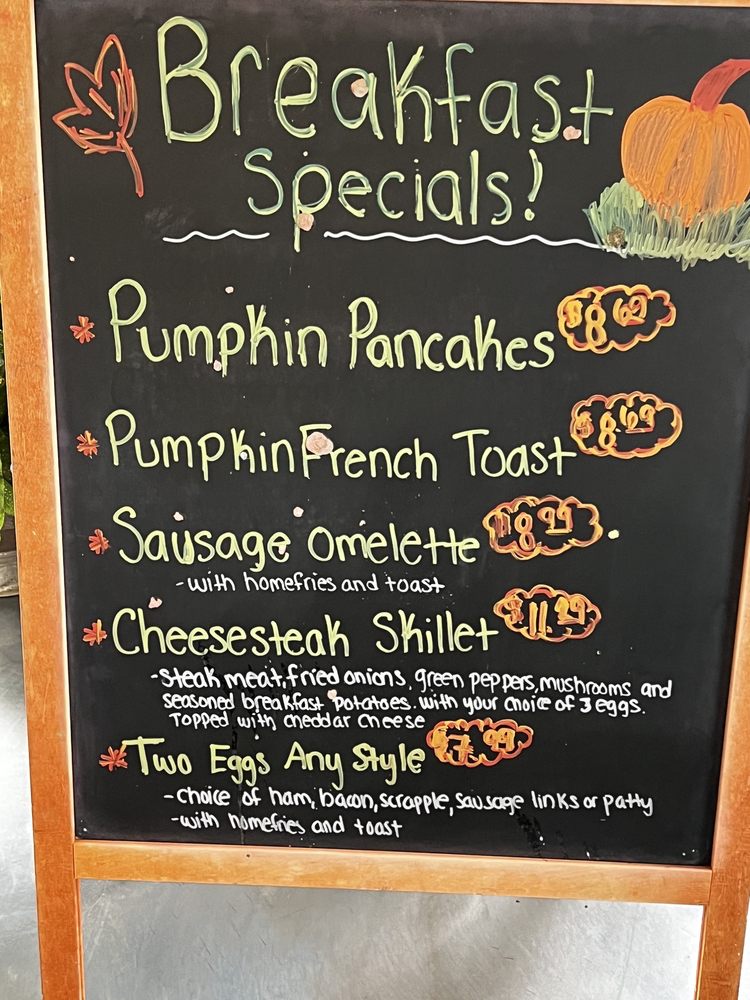 Breakfast
Specials!
* Pumpkin Pancakes $8.69
* Pumpkin French Toast $8.69
* Sausage Omelette $8.99
-with homefries and toast
* Cheesesteak Skillet $11.99
-steak meat, fried onions, green peppers, mushrooms and
seasoned breakfast potatoes. with your choice of 3 eggs.
Topped with cheddar cheese
* Two Eggs Any Style $7.99
-choice of ham, bacon, scrapple, sausage links or patty
-with homefries and toast